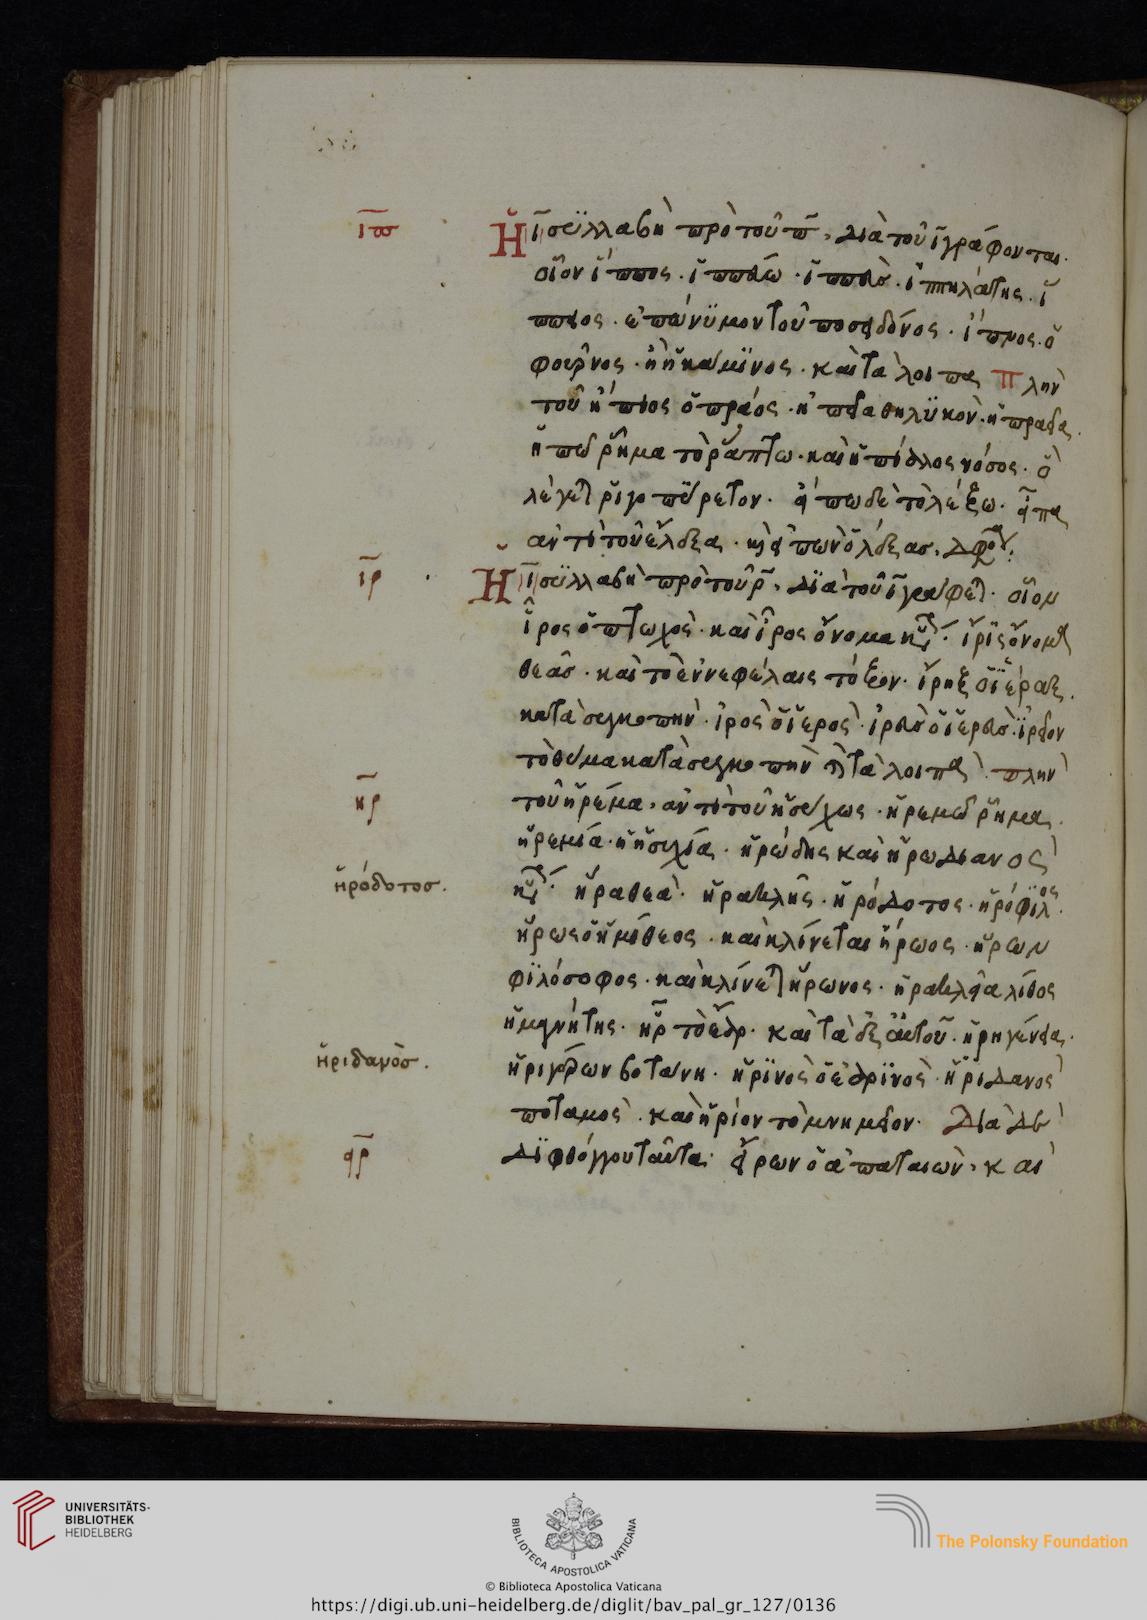 ιπ
Ἡ ῑ συλλαβὴ πρὸ τοῦ π̄, διὰ τοῦ ῑ γράφονται.
οἷον ἵππος. ἱππεύω. ἱππεὺς. ἱππηλάτης. ἵπ
πιος. ἐπώνυμον τοῦ ποσειδῶνος. ἰπνος. ὁ
φοῦρνος. ἢ ἡ κάμινος. καὶ τὰ λοιπα Πλὴν
τοῦ ἤπιος ὁ πρᾶος. ἠπεία θηλυκὸν. ἡ πραεῖα.
ῥῆμα τὸ ῥάπτω. καὶ ἠπίαλος νόσος. ὃ
λέγεται ῥιγοπύρετον. εἴπω δὲ τὸ λέξω. εἶπα
ἀντὶ τοῦ ἔλεξα. καὶ εἰπὼν ὁ λέξας.
ιρ
Ἡ ῑ συλλαβὴ πρὸ τοῦ ρ̄, διὰ τοῦ ῑ γράφεται. οἷον
ἶρος ὁ πτωχὸς. καὶ ἶρος ὄνομα ἶρις ὄνομα
θεᾶς. καὶ τὸ ἐν νεφέλαις τόξον. ἴρηξ ὁ ἱέραξ.
κατὰ συγκοπὴν. ἱρὸς ὁ ἱερὸς. ἱρεὺς ὁ ἱερεὺς. ἱρεῖον
τὸ θύμα κατὰ συγκοπὴν καὶ τὰ λοιπὰ. πλὴν
ηρ
τοῦ ἠρέμα, ἀντὶ τοῦ ἡσύχως. ἠρεμῶ ῥῆμα.
ἠρεμία. ἡ ἡσυχία. ἡρώδης καὶ ἡρωδιανὸς
ἡρόδοτος.
ἥρα θεὰ. ἡρακλῆς. ἡρόδοτος. ἡρόφιλος.
ἥρως ὁ ἡμίθεος. καὶ κλίνεται ἥρωος. ἥρων
φιλόσοφος. καὶ κλίνεται ἥρωνος. ἡρακλεία λίθος
ἡ μαγνήτης. ἦρ τὸ ἔαρ. καὶ τὰ ἐξ αὐτοῦ. ἠριγένεια.
ἠριδανὸς.
ἠριγέρων βοτάνη. ἠρινὸς ὁ ἐαρινὸς. ἠριδανὸς
ποταμὸς. καὶ ἠρίον τὸ μνημεῖον. Διὰ δὲ
ειρ
διφθόγγου ταῦτα. εἴρων ὁ ἀπαταιὼν. καὶ
UNIVERSITÄTS-
BIBLIOTHEK
HEIDELBERG
BIBLIOTECA APOSTOLICA VATICANA
The Polonsky Foundation
© Biblioteca Apostolica Vaticana
https://digi.ub.uni-heidelberg.de/diglit/bav_pal_gr_127/0136